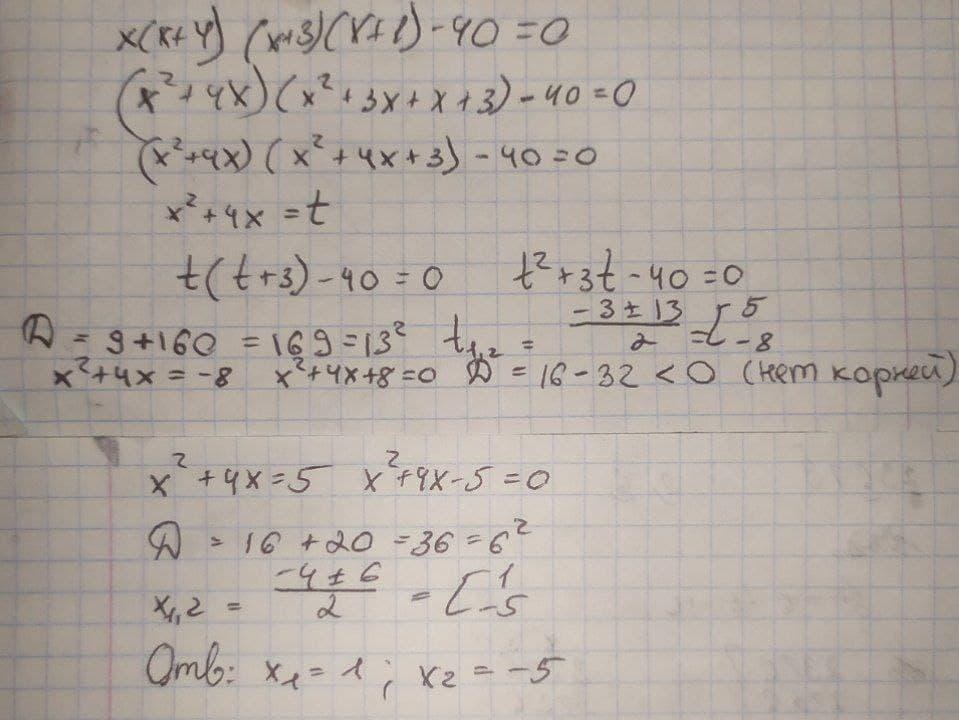 x(x+4) (x+3)(x+1) - 40 = 0
(x²+4x)(x²+3x+x+3) - 40 = 0
(x²+4x)(x²+4x+3) - 40 = 0
x²+4x = t
t(t+3) - 40 = 0 t²+3t-40=0
D = 9+160 = 169 = 13² t₁,₂ = (-3±13)/2 = [5 -8
x²+4x = -8 x²+4x+8=0 D = 16-32 < 0 (нет корней)
x²+4x=5 x²+4x-5=0
D = 16+20 = 36 = 6²
x₁,₂ = (-4±6)/2 = [1 -5
Отв: x₁ = 1 ; x₂ = -5